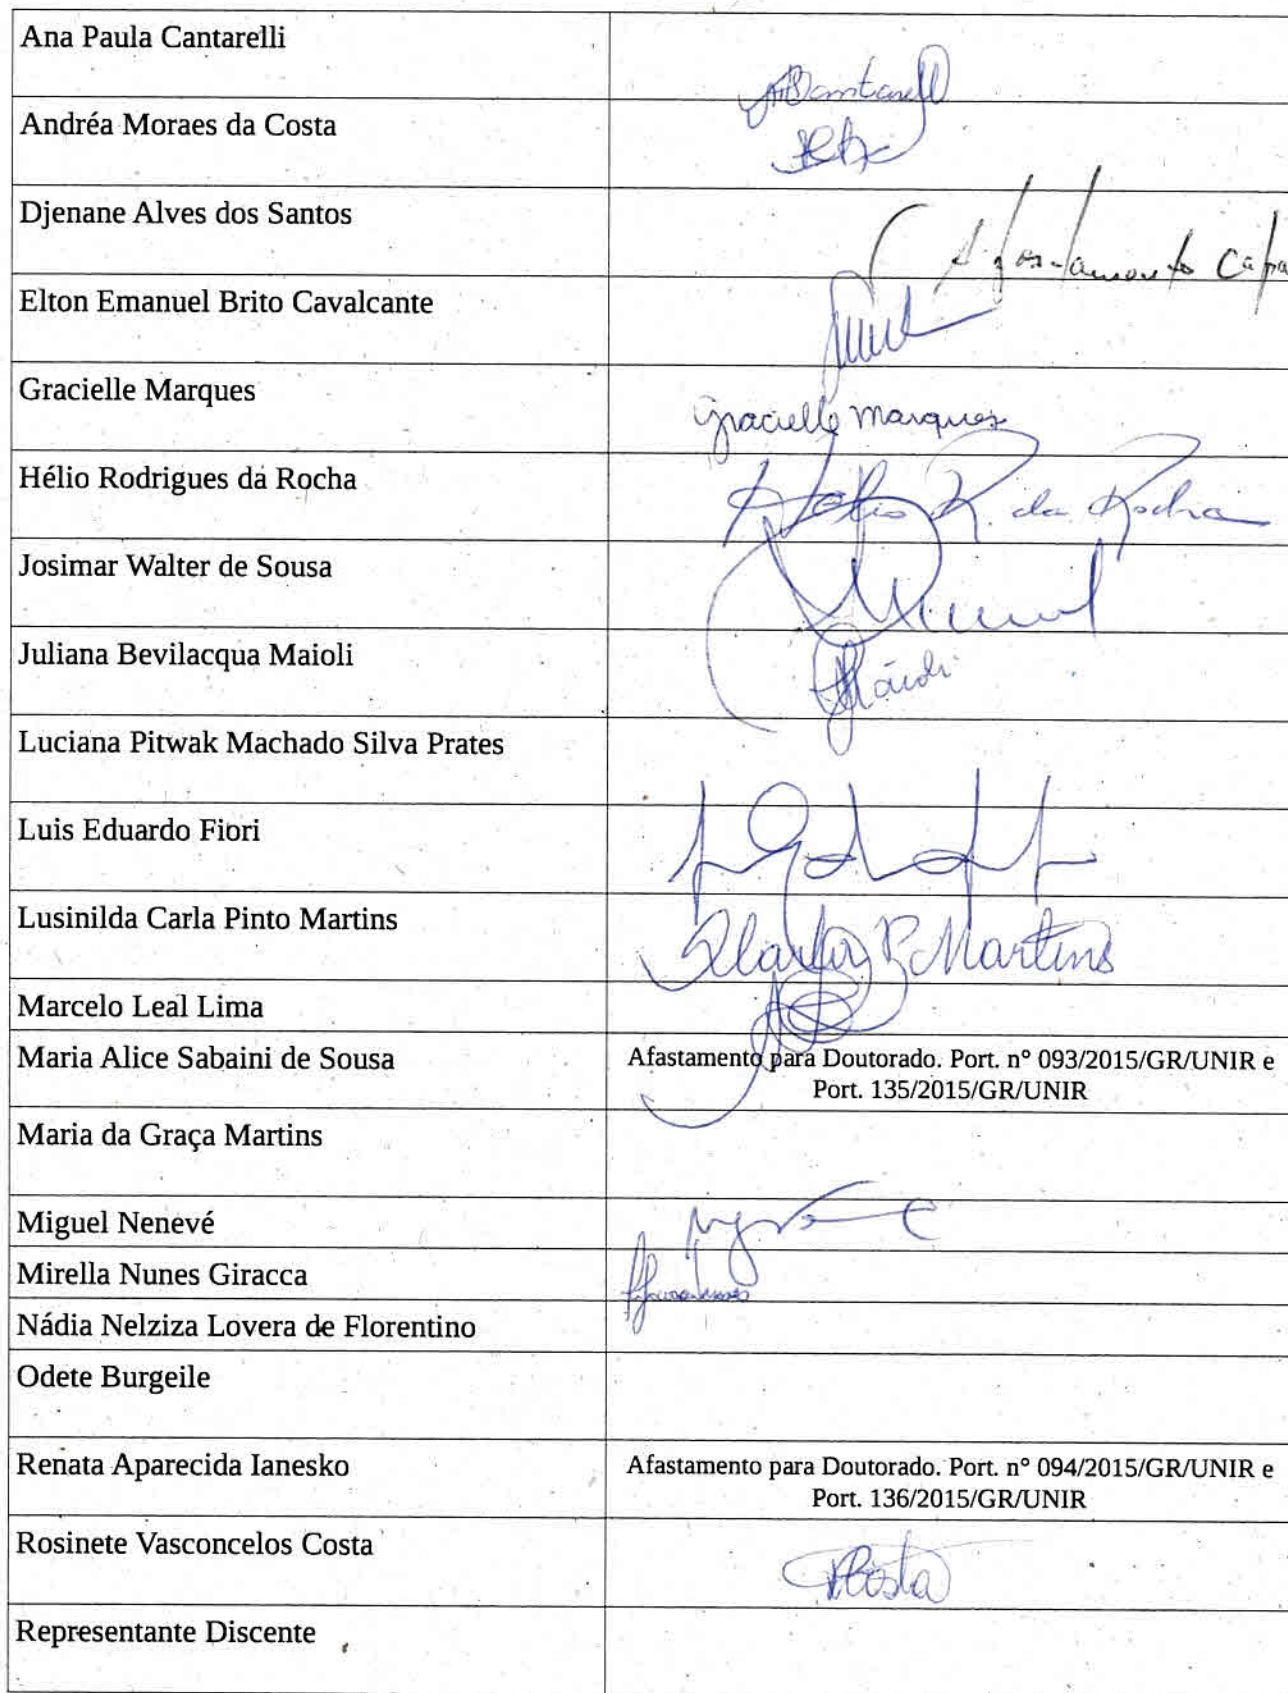 Ana Paula Cantarelli
Andréa Moraes da Costa
Djenane Alves dos Santos
Afastamento
Elton Emanuel Brito Cavalcante
Gracielle Marques
Gracielle Marques
Hélio Rodrigues da Rocha
Hélio R. da Rocha
Josimar Walter de Sousa
Juliana Bevilacqua Maioli
Luciana Pitwak Machado Silva Prates
Luis Eduardo Fiori
Lusinilda Carla Pinto Martins
Carla P. Martins
Marcelo Leal Lima
Maria Alice Sabaini de Sousa
Afastamento para Doutorado. Port. nº 093/2015/GR/UNIR e
Port. 135/2015/GR/UNIR
Maria da Graça Martins
Miguel Nenevé
Mirella Nunes Giracca
Nádia Nelziza Lovera de Florentino
Odete Burgeile
Renata Aparecida Ianesko
Afastamento para Doutorado. Port. nº 094/2015/GR/UNIR e
Port. 136/2015/GR/UNIR
Rosinete Vasconcelos Costa
RCosta
Representante Discente